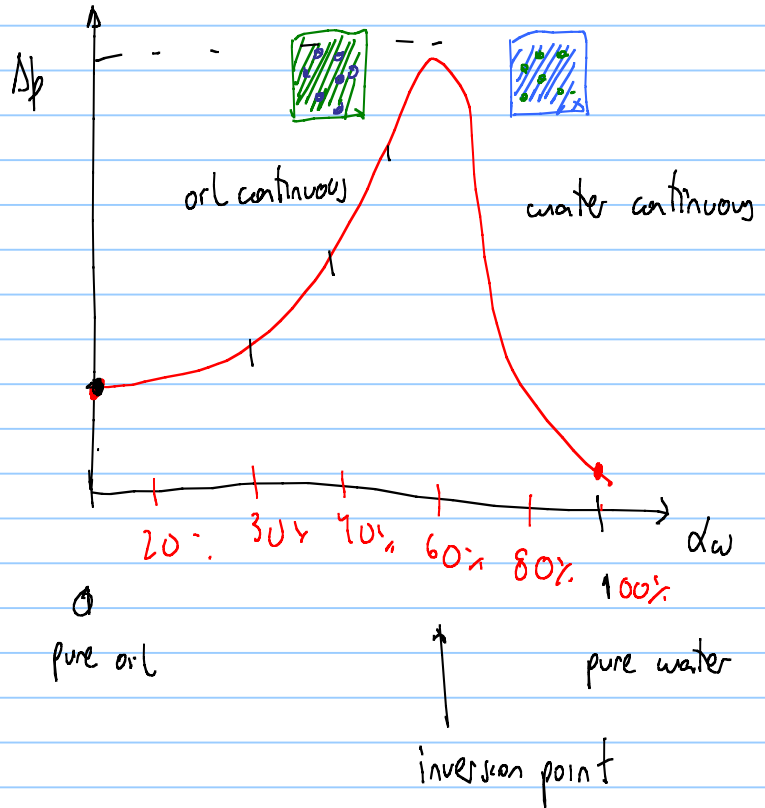 Δp
oil continuous
water continuous
20%
30%
40%
60%
80%
100%
αw
0
pure oil
pure water
inversion point